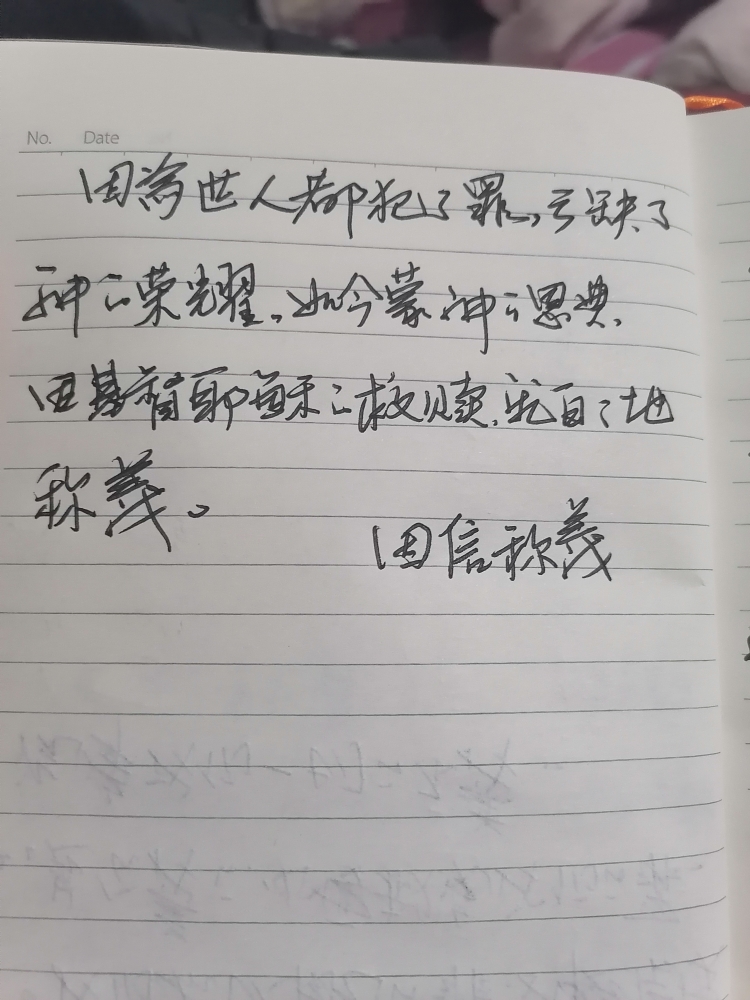 No. Date
因為世人都犯了罪,亏缺了
神的荣光耀。如今蒙神的恩典,
因基督耶穌的救贖,就白白地
称義。
因信称義